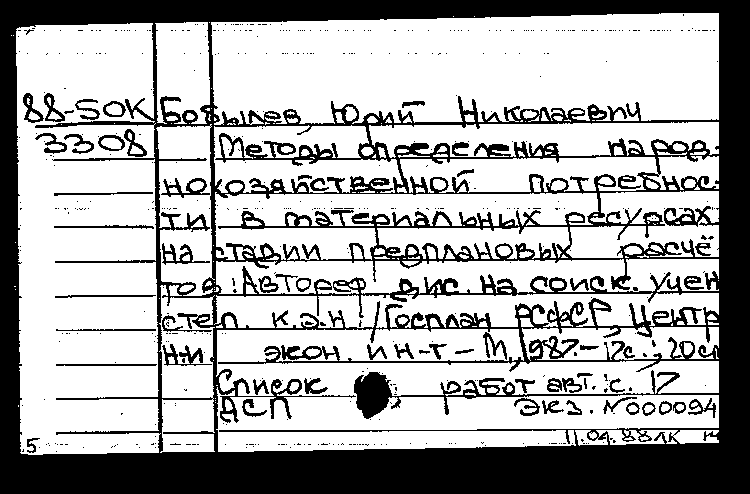 88-SOK Бобылев, Юрий Николаевич
3308 Методы определения народ-
нохозяйственной потребнос-
ти в материальных ресурсах
на стадии предплановых расчё
тов: Автореф. дис. на соиск. учен
степ. к.э.н. / Госплан РСФСР, Центр
н-и. экон. ин-т. - М., 1987. - 17с.; 20см
Список работ авт.: с. 17
АСП экз. N000094
11.04.88 ЛК
5